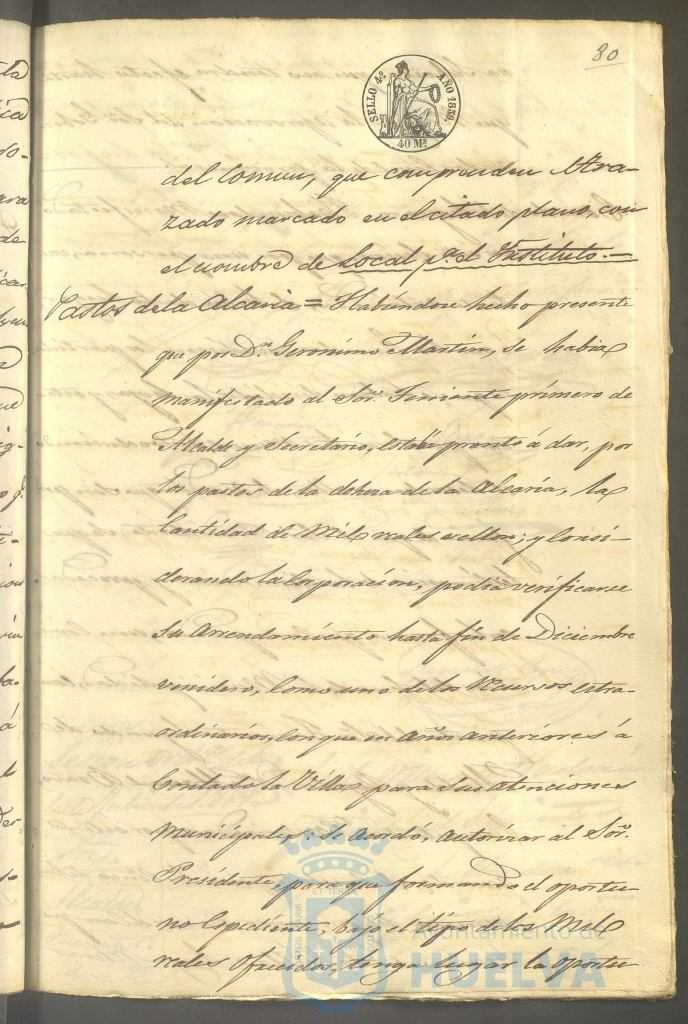 80
SELLO 4º AÑO 1859.
40 Ms
del Comun, que comprenden el tra-
zado marcado en el citado plano, con
el nombre de Local pa. el Instituto.=
Pastos de la Alcaria = Habiendose hecho presente
que por Dn. Geronimo Martin, se habia
manifestado al Sor. Teniente primero de
Alcalde y Secretario, estaba pronto á dar, por
los pastos de la dehesa de la Alcaria, la
Cantidad de Mil reales vellon; y Consi-
derando la Corporacion, podia verificarse
su arrendamiento hasta fin de Diciembre
venidero, Como uno de los Recursos estra-
ordinarios, con que en años anteriores á
Contado la Villa para sus atenciones
Municipales: Se acordó, autorizar al Sor.
Presidente, para que formando el oportu-
no Espediente, bajo el tipo de los Mil
reales ofrecidos, tenga lugar la oportu
Ayuntamiento de
HUELVA